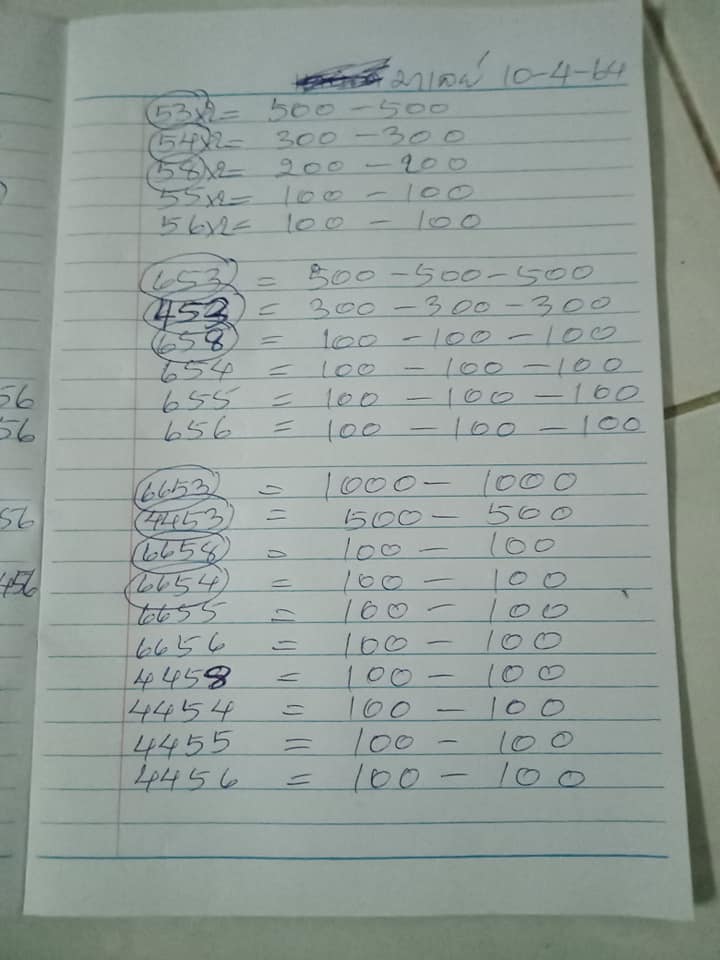 มาเลย์ 10-4-64
53x2= 500 - 500
54x2= 300 - 300
58x2= 200 - 200
55x2= 100 - 100
56x2= 100 - 100
653 = 500 - 500 - 500
453 = 300 - 300 - 300
658 = 100 - 100 - 100
654 = 100 - 100 - 100
655 = 100 - 100 - 100
656 = 100 - 100 - 100
6653 = 1000 - 1000
4453 = 500 - 500
6658 = 100 - 100
6654 = 100 - 100
6655 = 100 - 100
6656 = 100 - 100
4458 = 100 - 100
4454 = 100 - 100
4455 = 100 - 100
4456 = 100 - 100
56
56
56
456